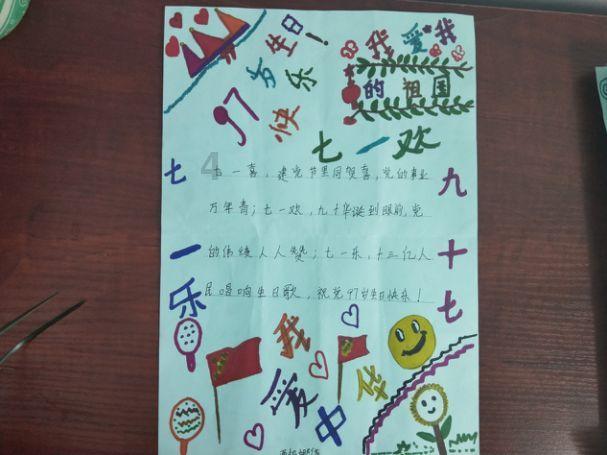 97岁生日!
快乐
我爱我
的祖国
七一欢
七一乐
九十七
七一喜,建党节里同贺喜,党的事业
万年青;七一欢,九十华诞到眼前,党
的伟绩人人赞;七一乐,十三亿人
民唱响生日歌,祝党97岁生日快乐!
我爱中华